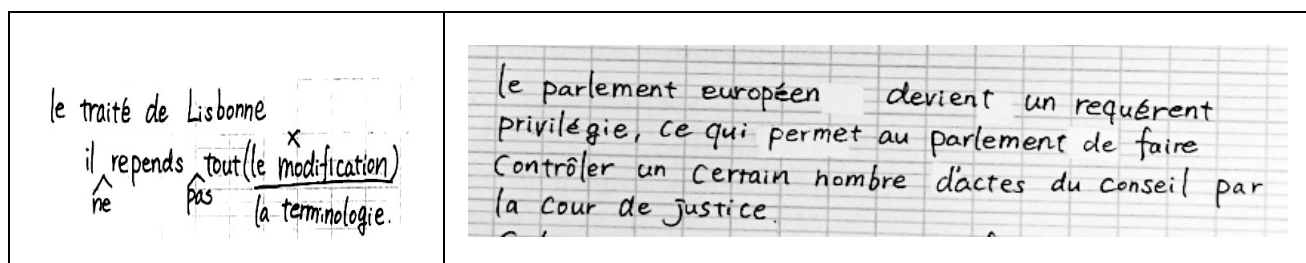 le traité de Lisbonne
x
il repends tout (le modification)
ne pas la terminologie.
le parlement européen devient un requérent
privilégie, ce qui permet au parlement de faire
contrôler un certain nombre d'actes du conseil par
la cour de justice.